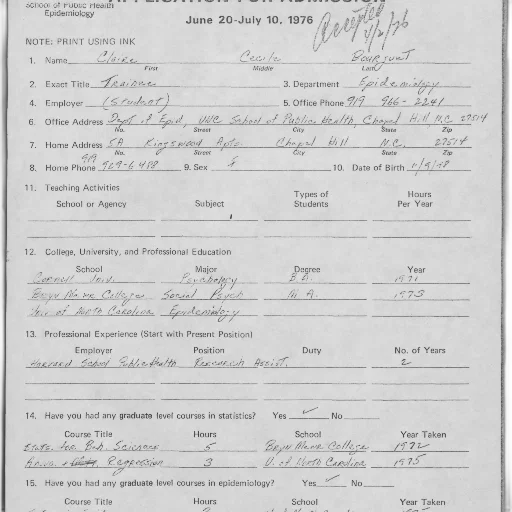 School of Public Health
Epidemiology
APPLICATION FOR ADMISSION
June 20-July 10, 1976
Accepted
4/2/76
NOTE: PRINT USING INK
1. Name Claire Cecile Bourguet
First Middle Last
2. Exact Title Trainee 3. Department Epidemiology
4. Employer (Student) 5. Office Phone 919 966-2241
6. Office Address Dept of Epid, UNC School of Public Health, Chapel Hill N.C. 27514
No. Street City State Zip
7. Home Address 5A Kingswood Apts. Chapel Hill N.C. 27514
No. Street City State Zip
8. Home Phone 919 929-6488 9. Sex F 10. Date of Birth 11/9/48
11. Teaching Activities
School or Agency Subject Types of Students Hours Per Year
12. College, University, and Professional Education
School Major Degree Year
Cornell Univ. Psychology B.A. 1971
Bryn Mawr College Social Psych M.A. 1973
Univ of North Carolina Epidemiology
13. Professional Experience (Start with Present Position)
Employer Position Duty No. of Years
Harvard School Public Health Research Assist. 2
14. Have you had any graduate level courses in statistics? Yes ✓ No
Course Title Hours School Year Taken
Stats. for Beh. Sciences 5 Bryn Mawr College 1972
Regression 3 U. of North Carolina 1975
15. Have you had any graduate level courses in epidemiology? Yes ✓ No
Course Title Hours School Year Taken